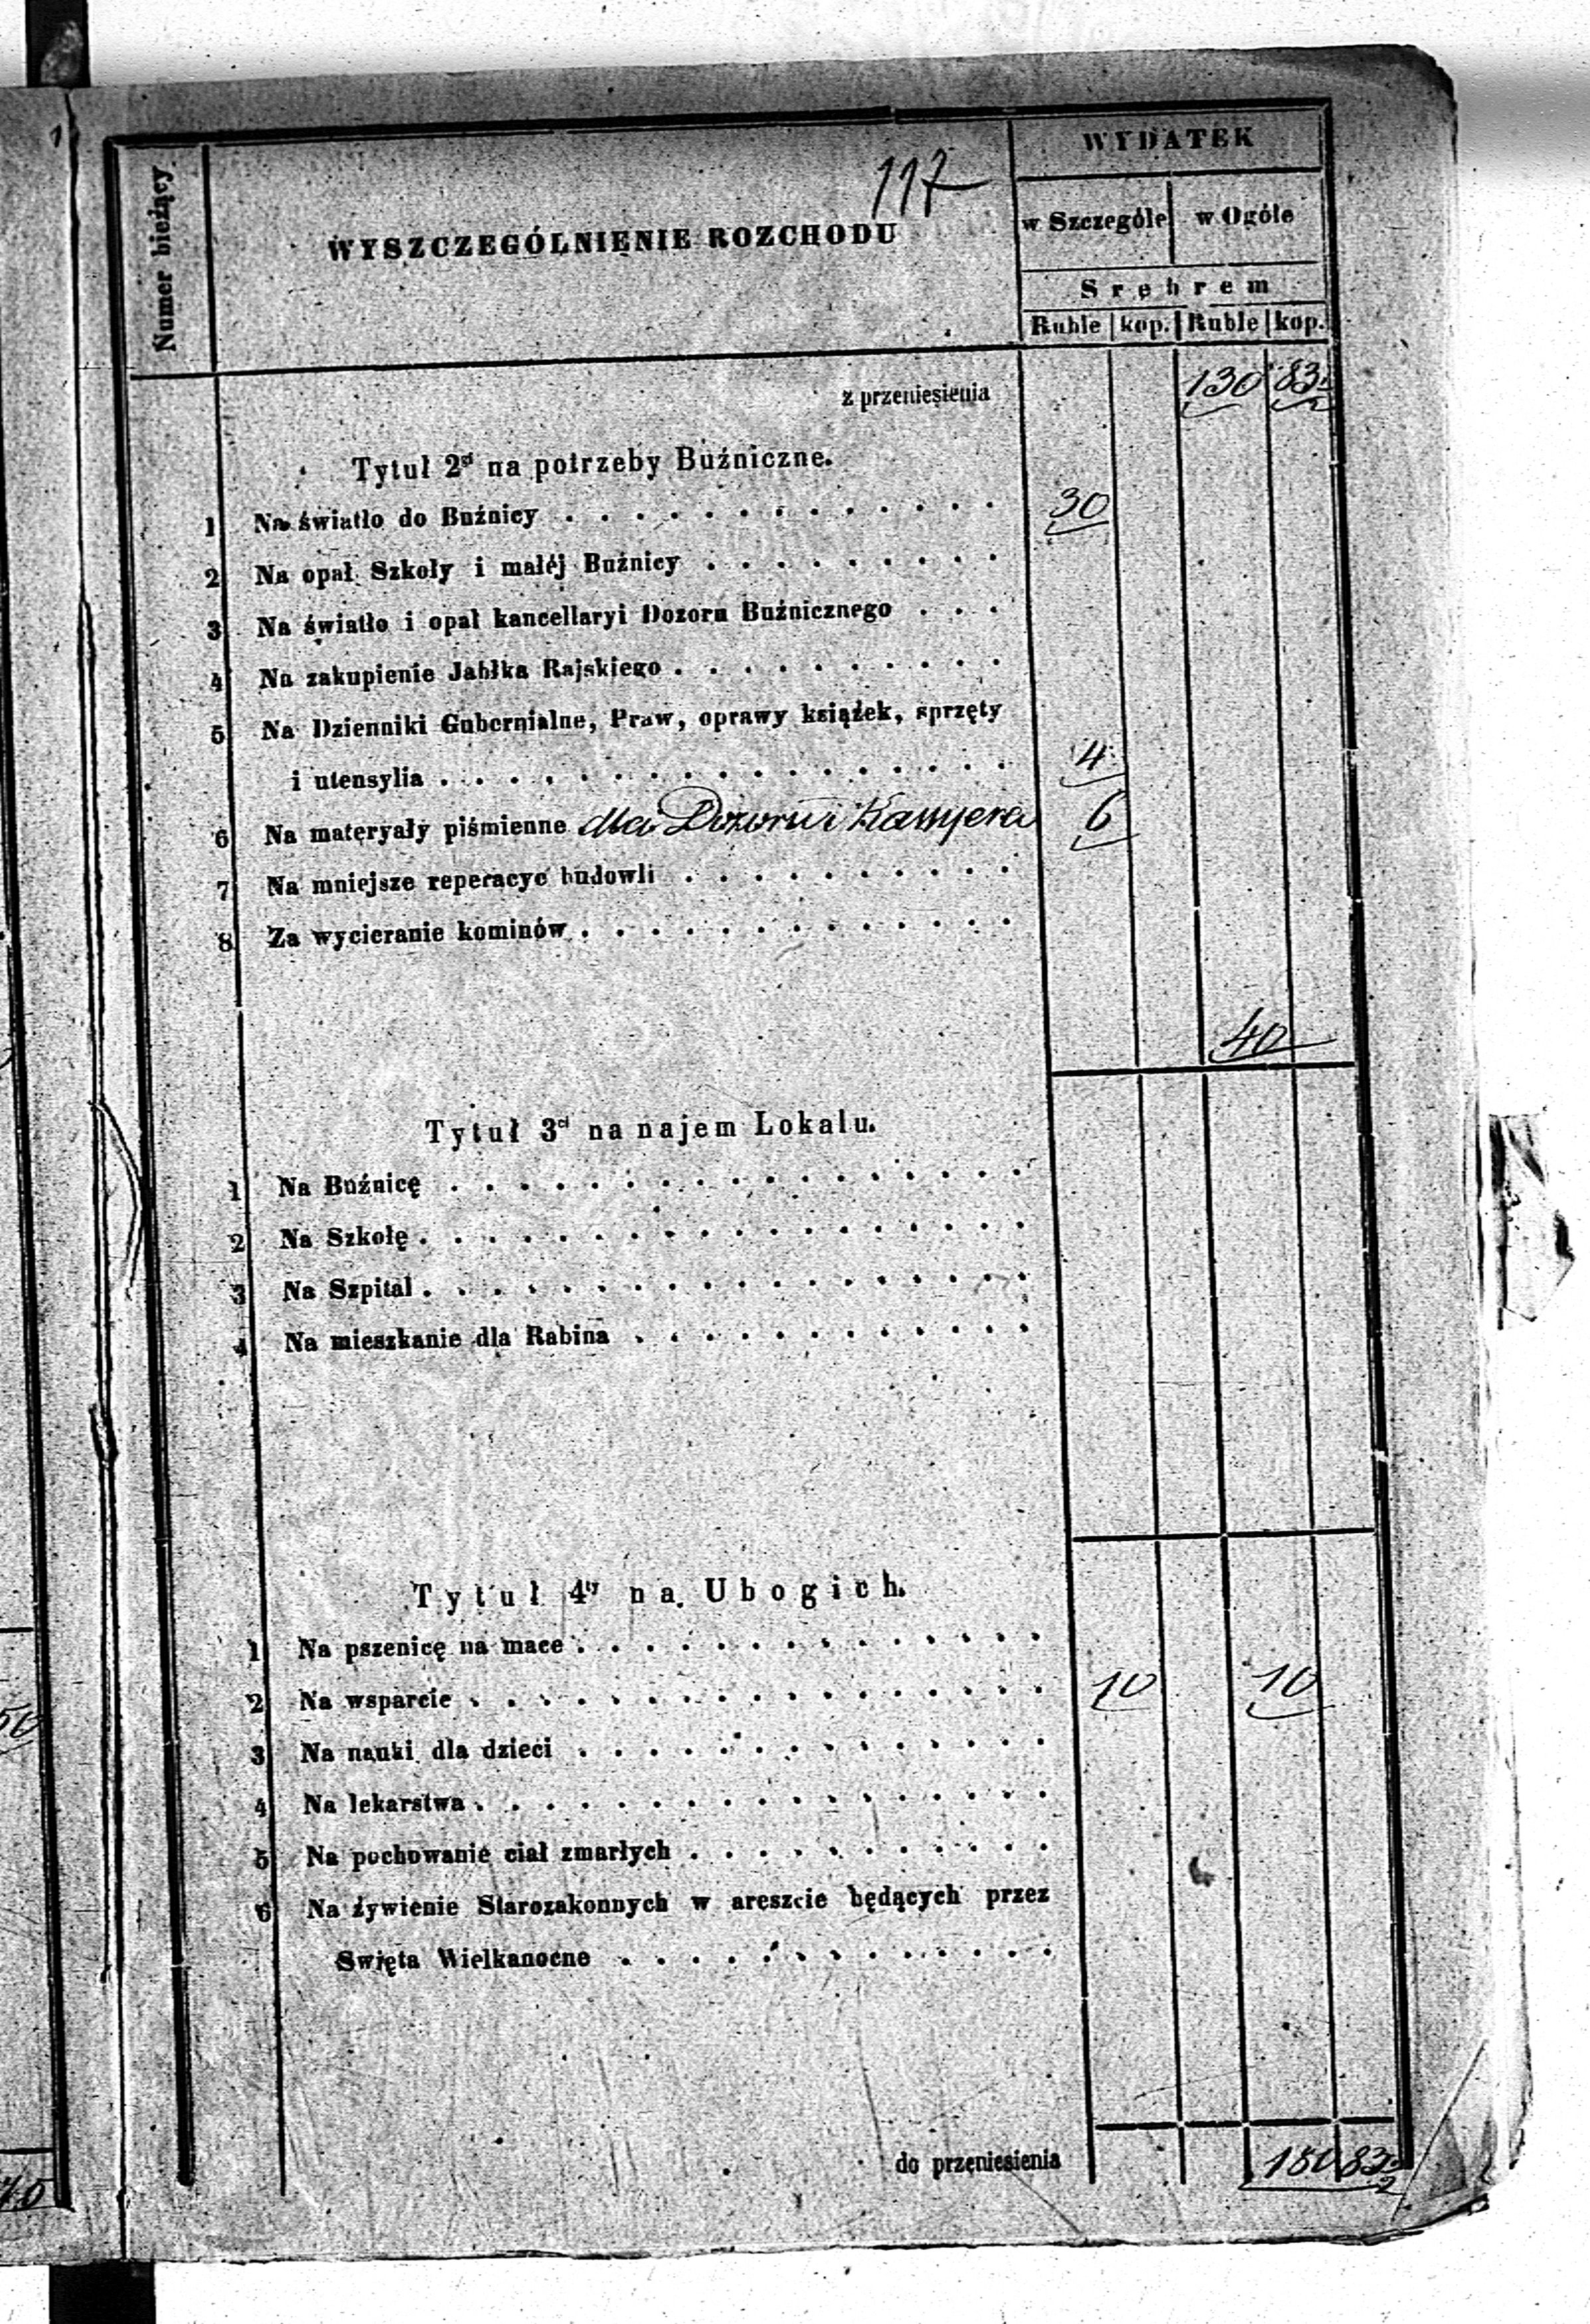 117
WYDATEK
Numer bieżący
WYSZCZEGÓLNIENIE ROZCHODU
w Szczególe w Ogóle
Srebrem
Ruble kop. Ruble kop.
z przeniesienia 130 83½
Tytuł 2gi na potrzeby Buźniczne.
1 Na światło do Buźnicy . . . . . . . . . . . . . 30
2 Na opał Szkoły i małéj Buźnicy . . . . . . . . .
3 Na światło i opał kancellaryi Dozoru Buźnicznego . . .
4 Na zakupienie Jabłka Rajskiego . . . . . . . . . .
5 Na Dzienniki Gubernialne, Praw, oprawy książek, sprzęty
i utensylia . . . . . . . . . . . . . . . . . 4
6 Na materyały piśmienne dla Dozoru i Kassyera 6
7 Na mniejsze reperacye budowli . . . . . . . . . .
8 Za wycieranie kominów . . . . . . . . . . . . .
40
Tytuł 3ci na najem Lokalu.
1 Na Buźnicę . . . . . . . . . . . . . . . . .
2 Na Szkołę . . . . . . . . . . . . . . . . . .
3 Na Szpital . . . . . . . . . . . . . . . . . .
4 Na mieszkanie dla Rabina . . . . . . . . . . . .
Tytuł 4ty na Ubogich.
1 Na pszenicę na mace . . . . . . . . . . . . . .
2 Na wsparcie . . . . . . . . . . . . . . . . . 10 10
3 Na nauki dla dzieci . . . . . . . . . . . . . .
4 Na lekarstwa . . . . . . . . . . . . . . . . .
5 Na pochowanie ciał zmarłych . . . . . . . . . . .
6 Na żywienie Starozakonnych w areszcie będących przez
Swięta Wielkanocne . . . . . . . . . . . . .
do przeniesienia 180 83½